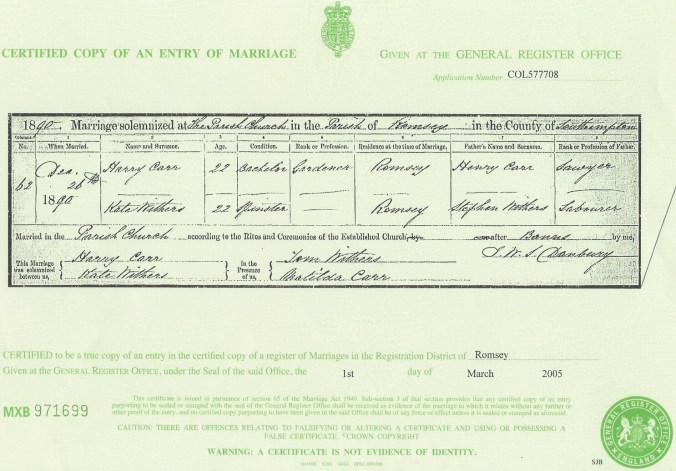 CERTIFIED COPY OF AN ENTRY OF MARRIAGE
GIVEN AT THE GENERAL REGISTER OFFICE
Application Number COL577708
1890. Marriage solemnized at The Parish Church in the Parish of Romsey in the County of Southampton
No. When Married. Name and Surname. Age. Condition. Rank or Profession. Residence at the time of Marriage. Father's Name and Surname. Rank or Profession of Father.
62 Dec. 26th 1890 Harry Carr 22 Bachelor Gardener Romsey Henry Carr Sawyer
Kate Withers 22 Spinster Romsey Stephen Withers Labourer
Married in the Parish Church according to the Rites and Ceremonies of the Established Church, by or after Banns by me,
This Marriage was solemnized between us, Harry Carr Kate Withers In the Presence of us, Tom Withers Matilda Carr
CERTIFIED to be a true copy of an entry in the certified copy of a register of Marriages in the Registration District of Romsey
Given at the GENERAL REGISTER OFFICE, under the Seal of the said Office, the 1st day of March 2005
MXB 971699
This certificate is issued in pursuance of section 65 of the Marriage Act 1949. Sub-section 3 of that section provides that any certified copy of an entry
purporting to be sealed or stamped with the seal of the General Register Office shall be received as evidence of the marriage to which it relates without any further or
other proof of the entry, and no certified copy purporting to have been given in the said Office shall be of any force or effect unless it is sealed or stamped as aforesaid.
CAUTION: THERE ARE OFFENCES RELATING TO FALSIFYING OR ALTERING A CERTIFICATE AND USING OR POSSESSING A
FALSE CERTIFICATE. ©CROWN COPYRIGHT
WARNING: A CERTIFICATE IS NOT EVIDENCE OF IDENTITY.
GENERAL REGISTER OFFICE
ENGLAND
SJB